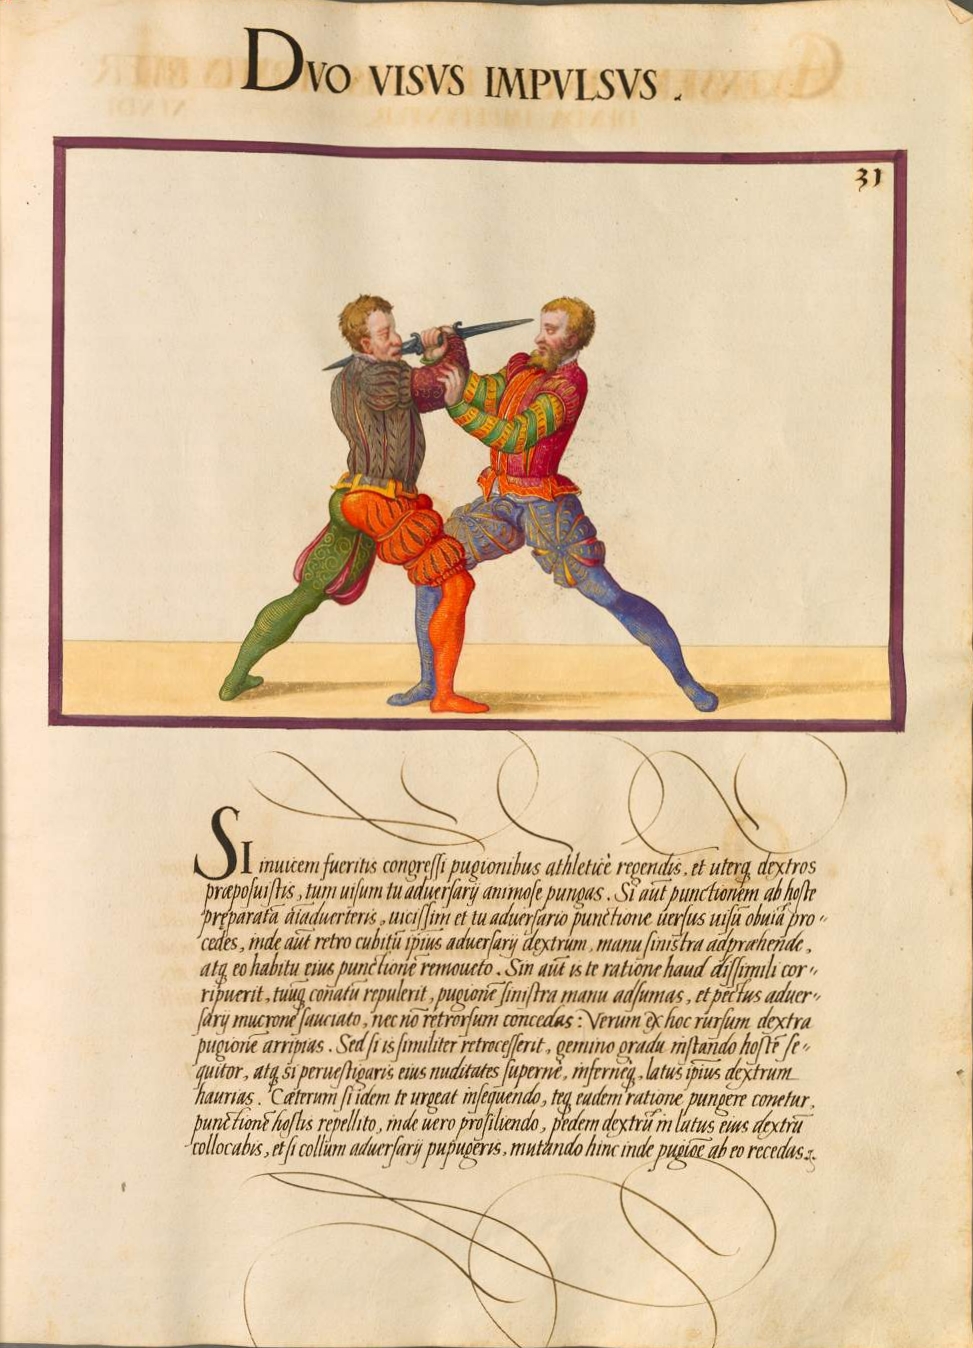 DVO VISVS IMPVLSVS.
31
SI inuicem fueritis congressi pugionibus athleticè regendis, et uterq dextros
præposuistis, tum uisum tu aduersarij animose pungas. Si aūt punctionem ab hoste
pręparatā aīaduerteris, uicissim et tu aduersario punctione uersus uisū obuiā pro„
cedes, inde aūt retro cubitū ipius aduersarij dextrum, manu sinistra adpræhende,
atq eo habitu eius punctionē remoueto. Sin aūt is te ratione haud dissimili cor„
ripuerit, tuūq conatū repulerit, pugionē sinistra manu adsumas, et pectus aduer„
sarij mucronē sauciato, nec nō retrorsum concedas: Verum ex hoc rursum dextra
pugionē arripias. Sed si is similiter retrocesserit, gemino gradu instando hostē se„
quitor, atq si peruestigaris eius nuditates supernè, infernèq, latus ipius dextrum
haurias. Cæterum si idem te urgeat insequendo, teq eadem ratione pungere conetur,
punctionē hostis repellito, inde uero prosiliendo, pedem dextrū in latus eius dextrū
collocabis, et si collum aduersarij pupugeris, mutando hinc inde pugiōē ab eo recedas.